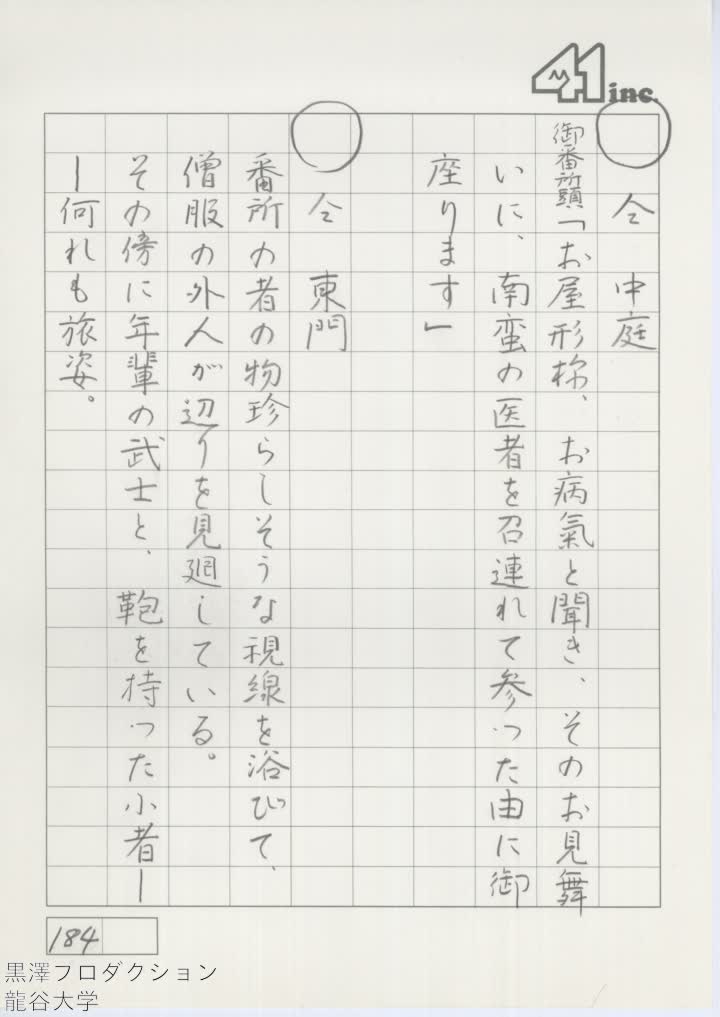 41 inc.
仝 中庭
御番所頭「お屋形様、お病氣と聞き、そのお見舞
いに、南蛮の医者を召連れて参った由に御
座ります」
仝 東門
番所の者の物珍らしそうな視線を浴びて、
僧服の外人が辺りを見廻している。
その傍に年輩の武士と、鞄を持った小者―
―何れも旅姿。
184
黒澤プロダクション
龍谷大学